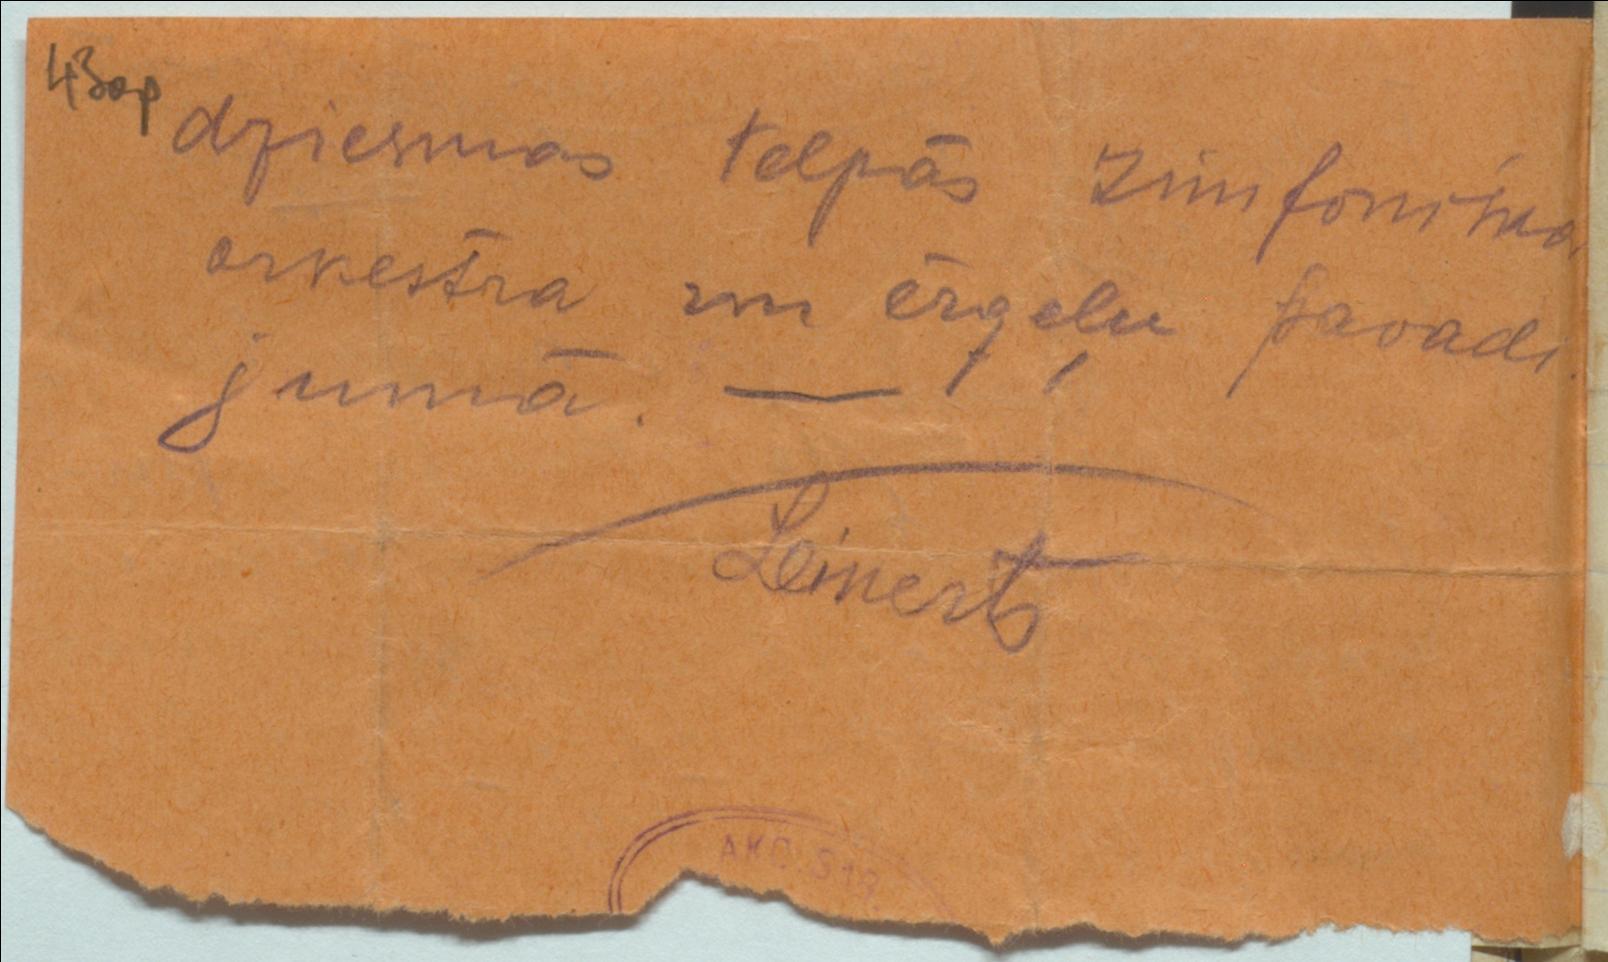 43op
dziesmas telpās zimfonīka
orkestra un ērģeļu pavadī
jumā. —
Leinerts
AKC. S18.